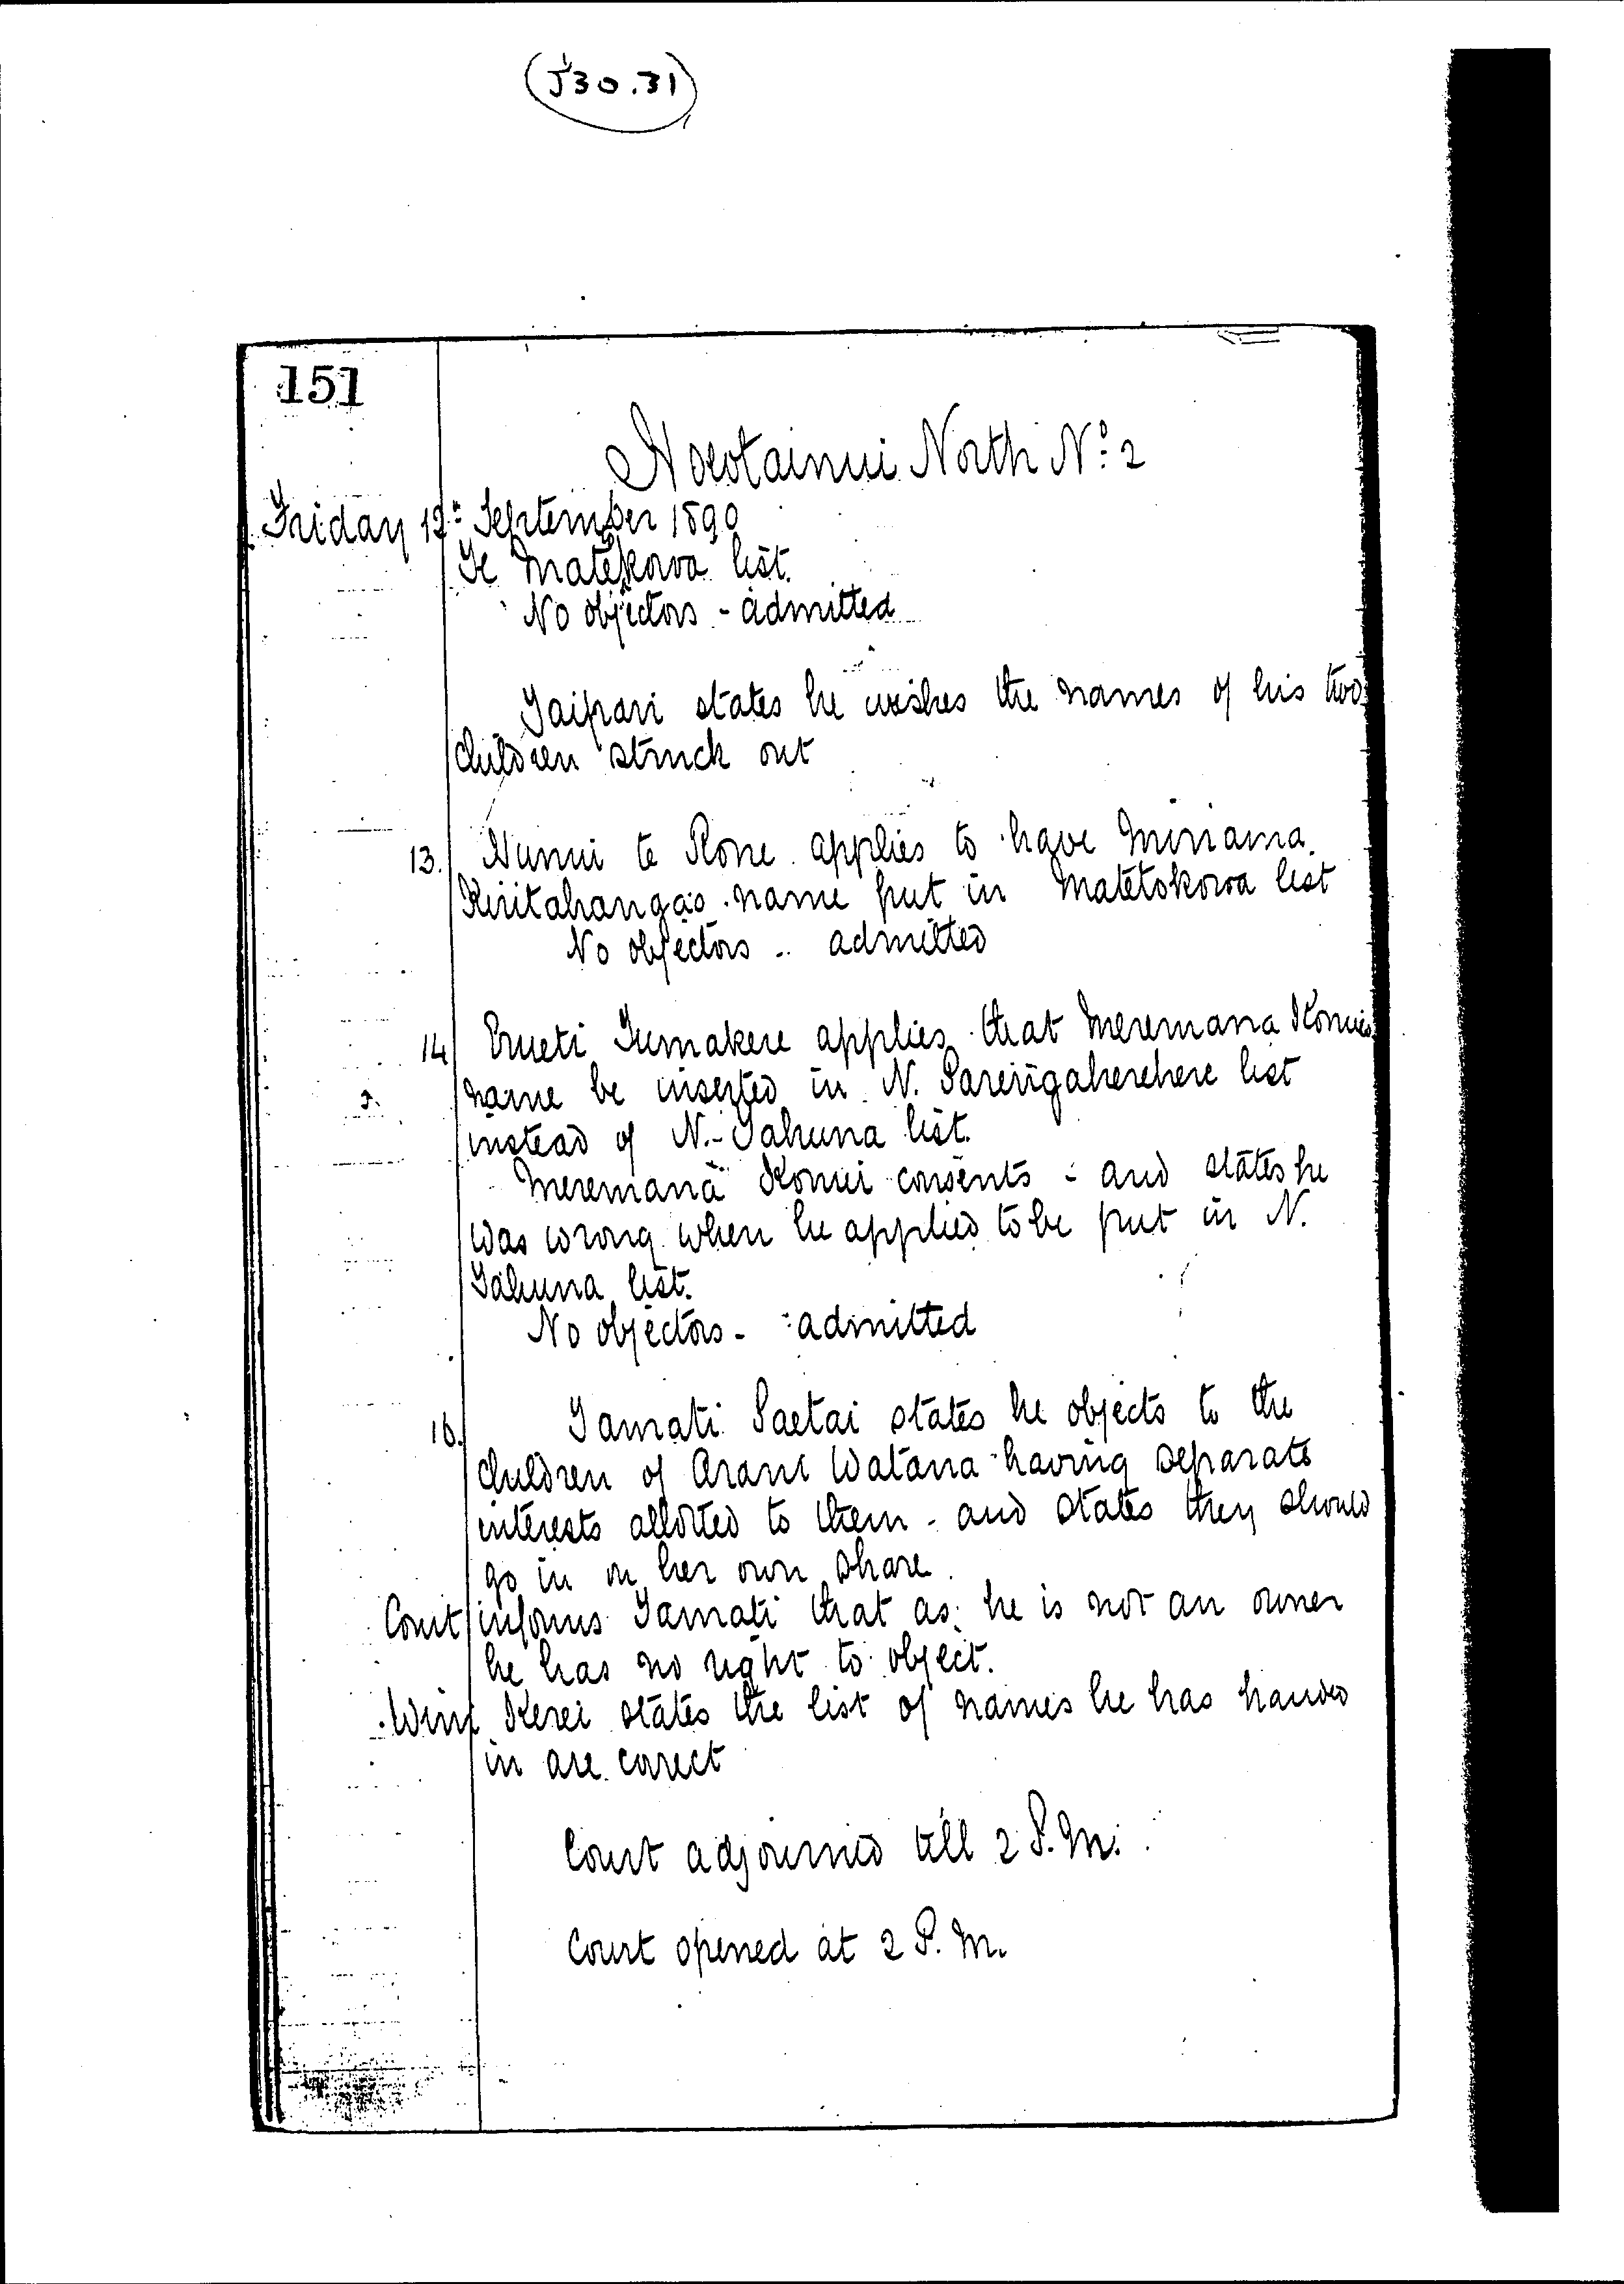 (J30.31)
151
Hoeotainui North No: 2
Friday 12: September 1890
Te Matekowa list.
No objectors - admitted
Taipari states he wishes the names of his two
children struck out
13. Nunui te Rone applies to have Miriama
Kiritahanga's name put in Matetokowa list
No objectors - admitted
14 Erueti Tumakere applies that Meremana Konui's
name be inserted in N. Parengaherehere list
instead of N. Tahuna list.
Meremana Konui consents - and states he
was wrong when he applied to be put in N.
Tahuna list.
No objectors - admitted
Tamati Paetai states he objects to the
children of Arani Watana having separate
interests allotted to them - and states they should
go in on her own share.
Court informs Tamati that as he is not an owner
he has no right to object.
Wini Kerei states the list of names he has handed
in are correct
Court adjourned till 2 P.M.
Court opened at 2 P.M.